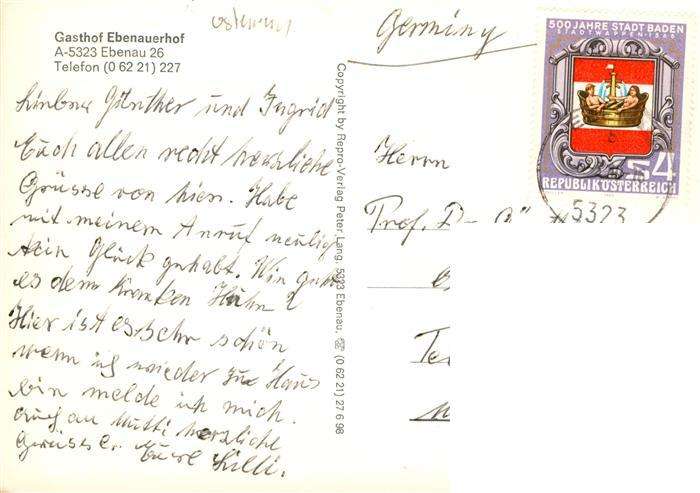 Gasthof Ebenauerhof
A-5323 Ebenau 26
Telefon (0 62 21) 227
Günther und Ingrid
Euch allen recht herzliche
Grüsse von hier. Habe
mit meinem Anruf neulich
kein Glück gehabt. Wie geht
es dem kranken Huhn?
Hier ist es sehr schön
wenn ich wieder zu Haus
bin melde ich mich.
auch an Mutti herzliche
Grüsse. Eure Lilli.
Copyright by Repro-Verlag Peter Lang, 5323 Ebenau, ☎ (0 62 21) 27 6 98
Germiny
500 JAHRE STADT BADEN
STADTWAPPEN 1480
S4
REPUBLIK ÖSTERREICH
5323
Herrn
Prof. D